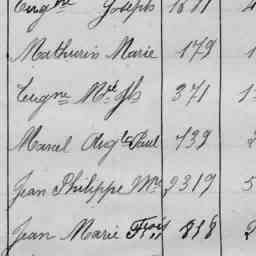 Eugne Joseph 1871
Mathurin Marie 179 1
Eugne Mie Jh 371 1
Marcel Augte Paul 739 2
Jean Philippe Mie 2319 5
Jean Marie Frois 818 2